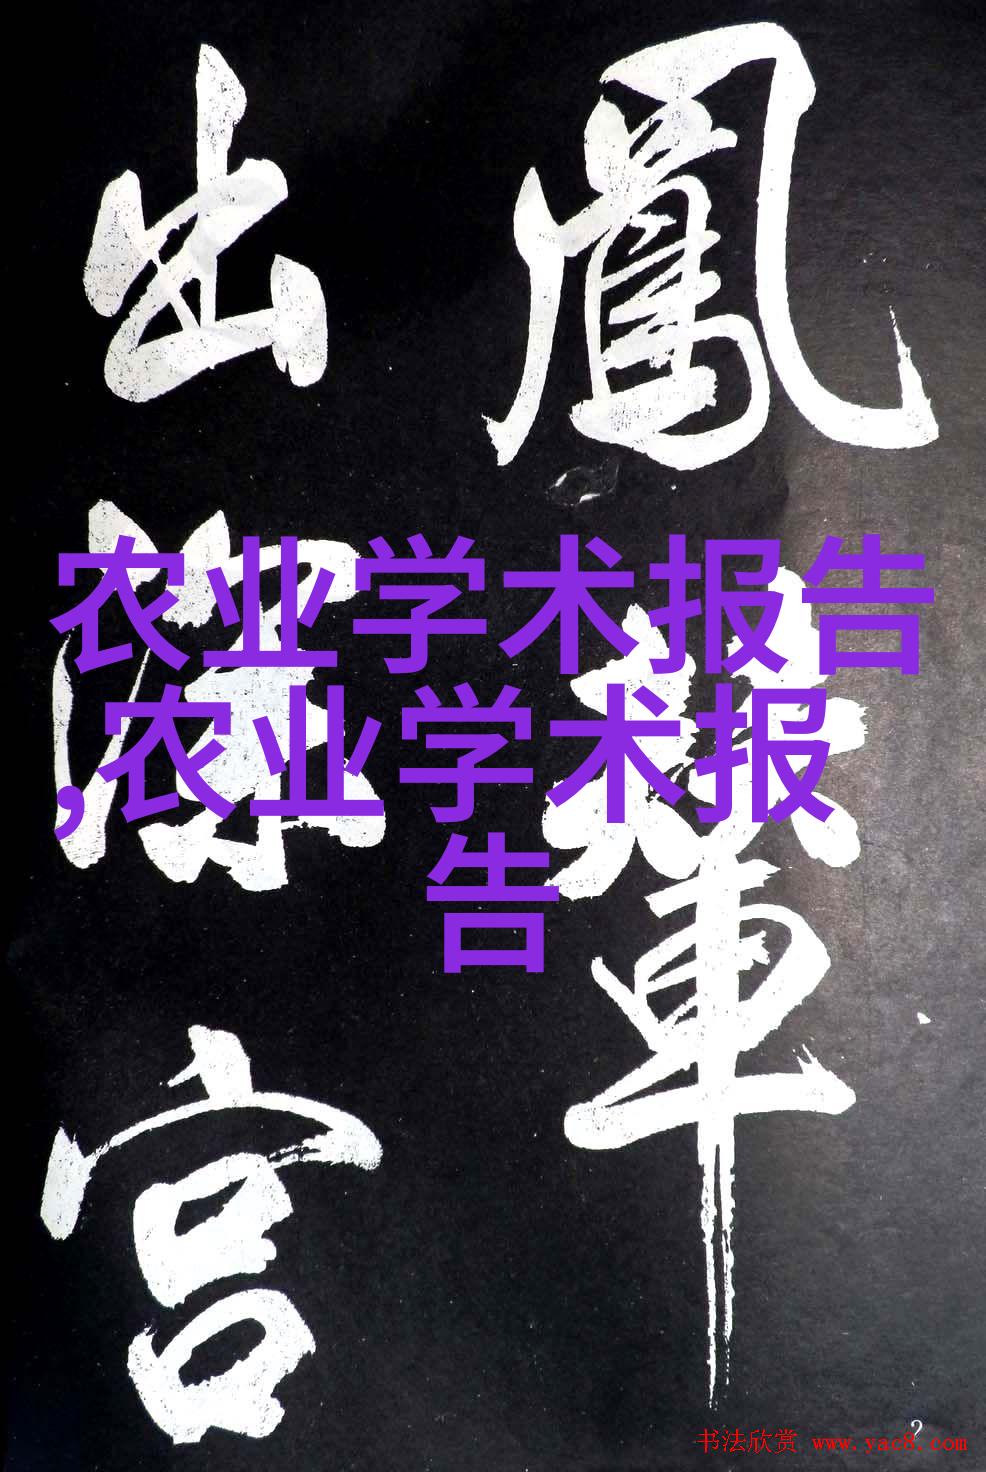 鳳輦
出深宮
农业学术报告
,农业学术报
告
2
书法欣赏 www.yac8.com